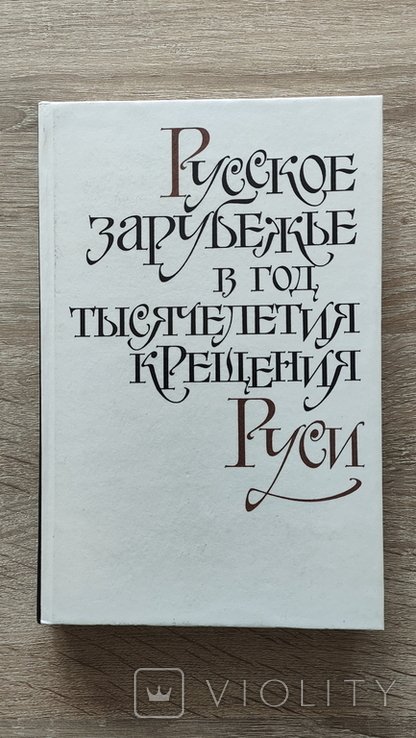 Русское
зарубежье
в год
тысячелетия
крещения
Руси
VIOLITY